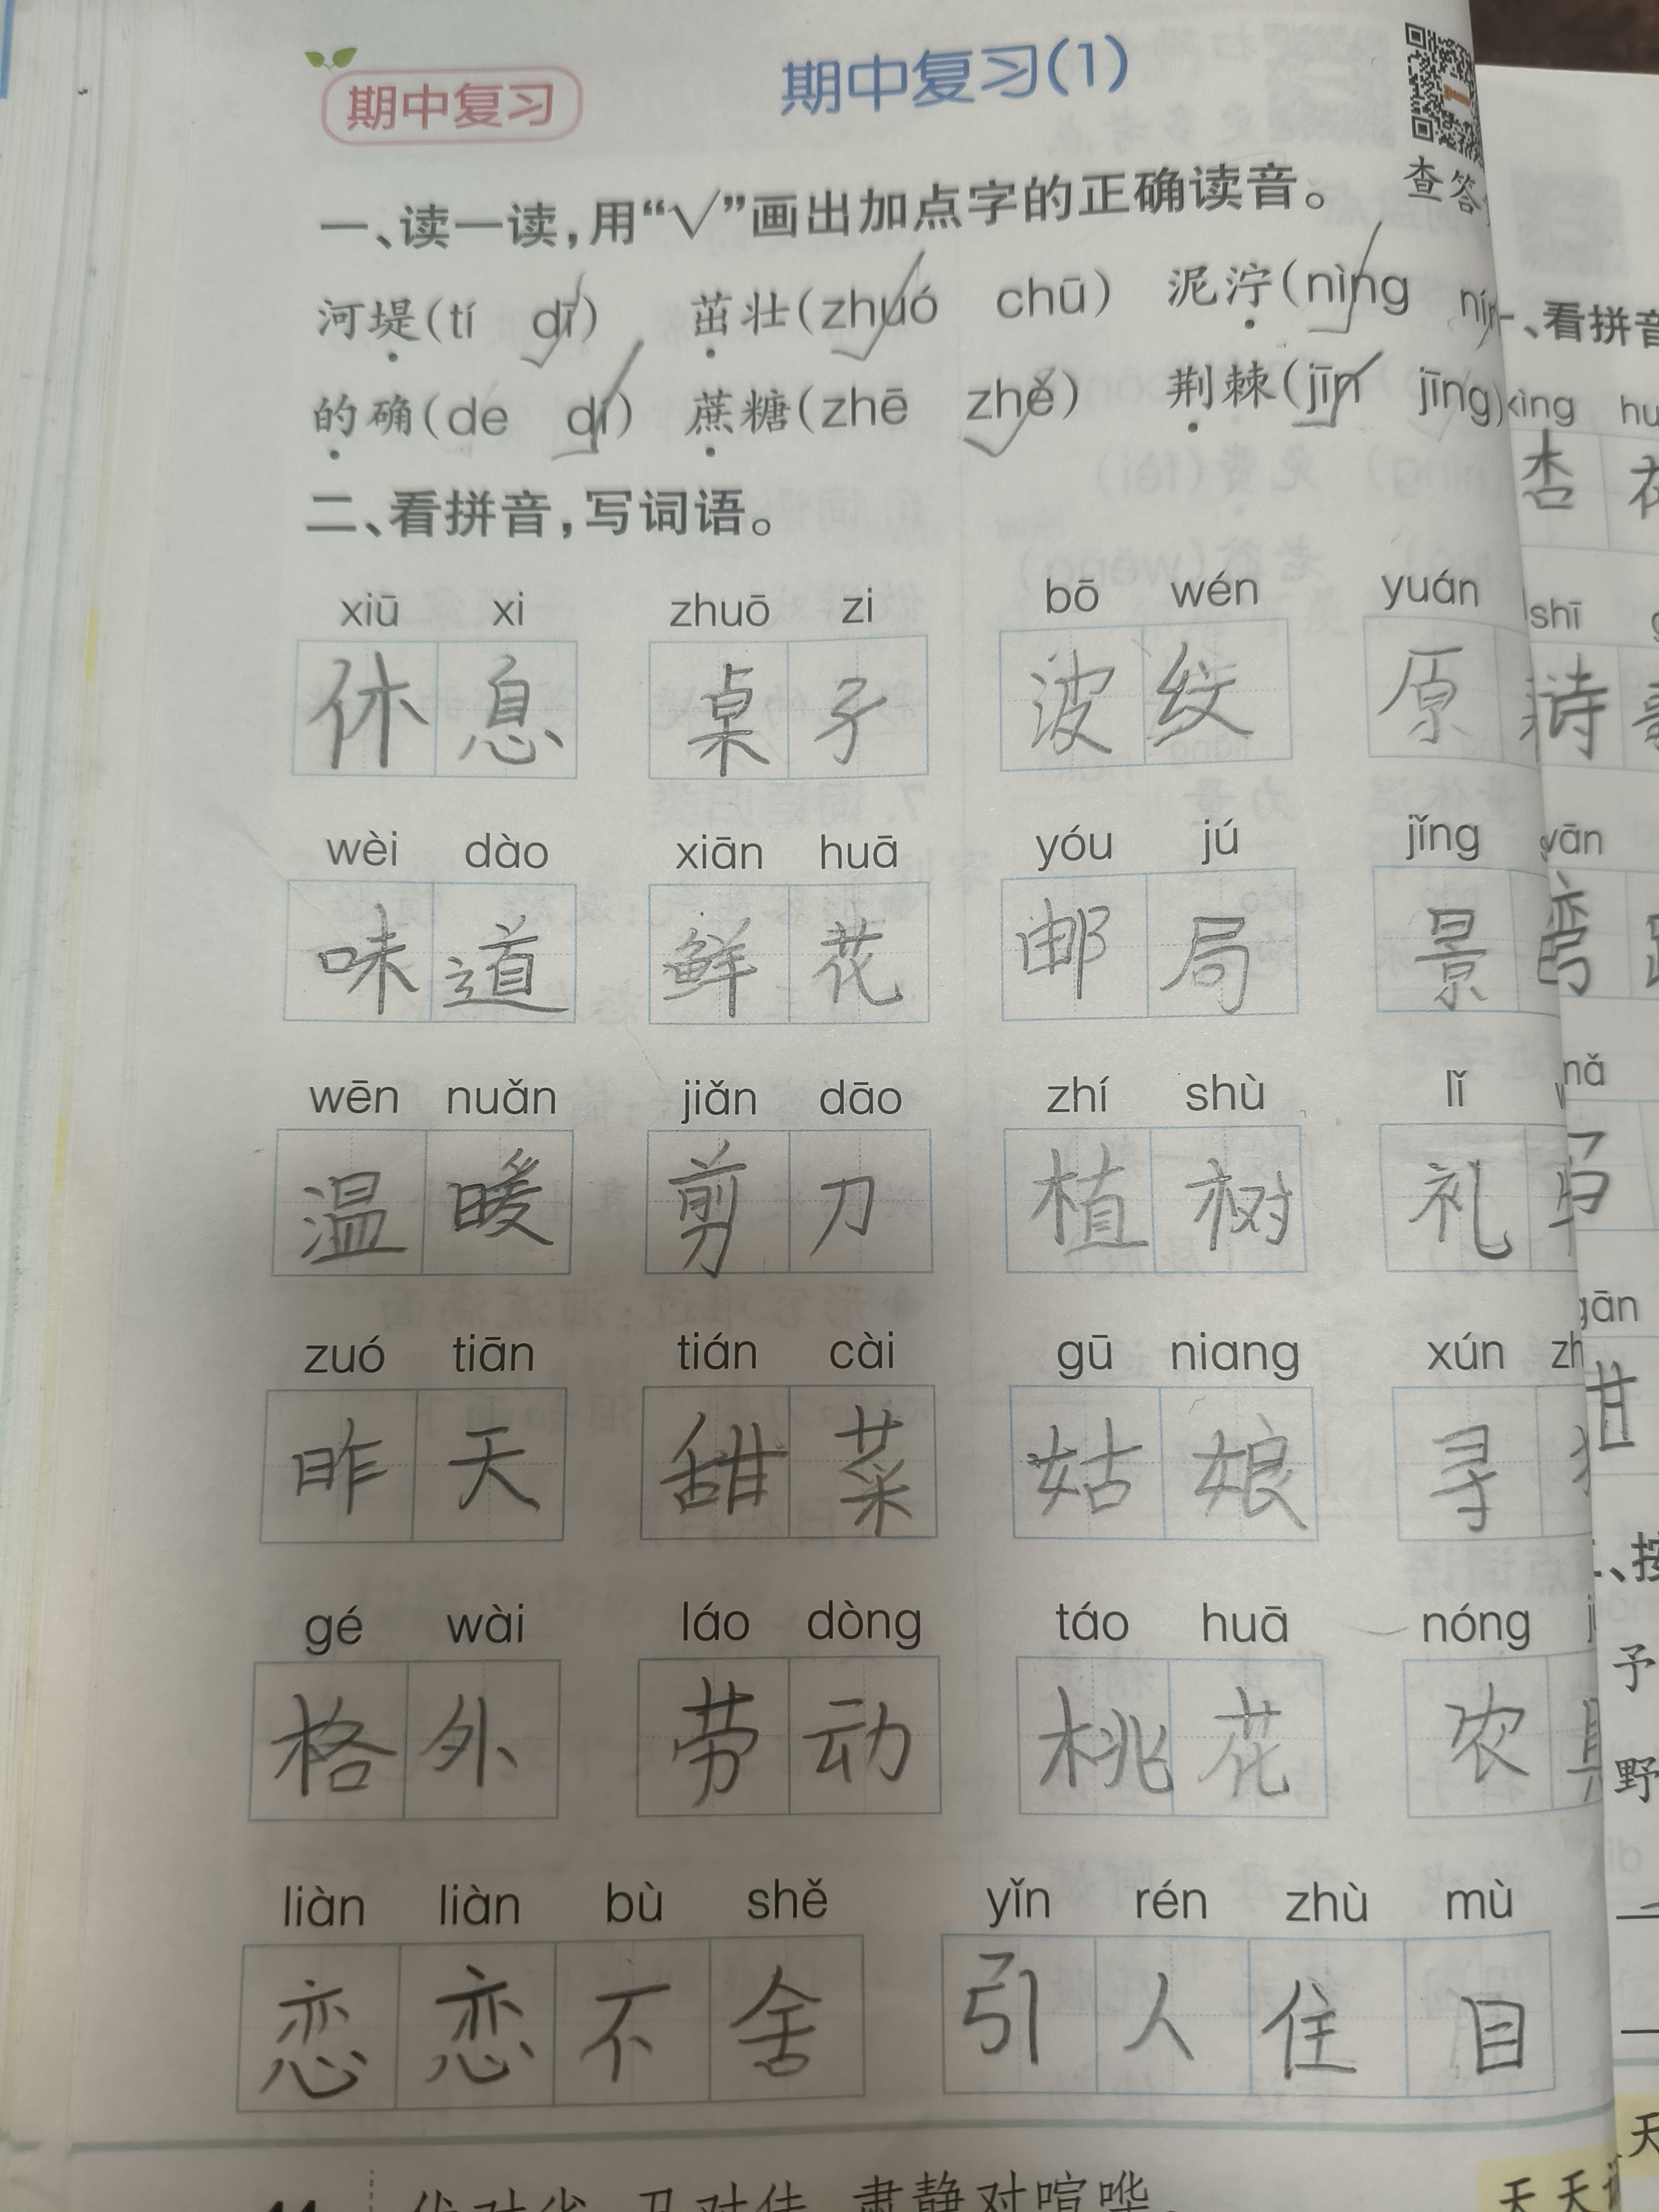 期中复习
期中复习(1)
查答
一、读一读，用“√”画出加点字的正确读音。
河堤(tí dī) 茁壮(zhuó chū) 泥泞(nìng
的确(de dí) 蔗糖(zhē zhè) 荆棘(jīn jīng)
二、看拼音，写词语。
xiū xi zhuō zi bō wén yuán
休息 桌子 波纹 原
wèi dào xiān huā yóu jú jǐng
味道 鲜花 邮局 景
wēn nuǎn jiǎn dāo zhí shù lǐ
温暖 剪刀 植树 礼
zuó tiān tián cài gū niang xún zh
昨天 甜菜 姑娘 寻
gé wài láo dòng táo huā nóng
格外 劳动 桃花 农
liàn liàn bù shě yǐn rén zhù mù
恋恋不舍 引人住目
肃静对喧哗。
天天
、看拼音
xìng hu
杏
shī
诗
wān
弯
mǎ
gān
甘
、按
予
野
天